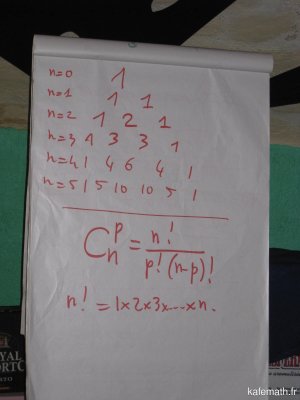 n=0 1
n=1 1 1
n=2 1 2 1
n=3 1 3 3 1
n=4 1 4 6 4 1
n=5 1 5 10 10 5 1
C_n^p = n! / p! (n-p)!
n! = 1x2x3x.....x n.
YAL
ORTO
kafemath.fr